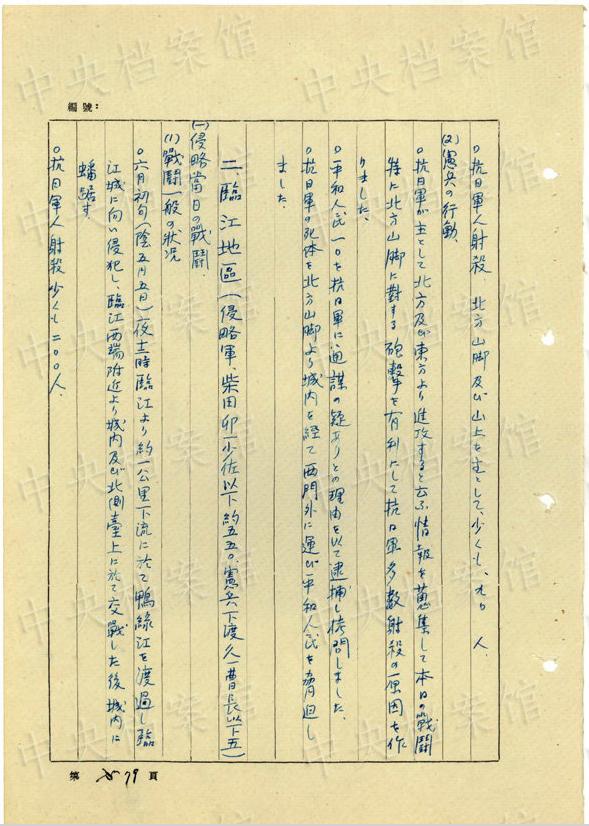 編號：
○抗日軍人射殺　北方山脚及び山上を主として、少くも、九〇　人、
(2)憲兵の行動、
○抗日軍が主として北方及び東方より進攻すると云ふ情報を蒐集して本日の戰鬪
特に北方山脚に對する砲擊を有利にして抗日軍多數射殺の原因を作
りました、
○平和人民一〇を抗日軍に通謀の疑ありとの理由を以て逮捕し拷問しました、
○抗日軍の死体を北方山脚より城内を経て西門外に運び平和人民を脅迫し
ました、
二、臨江地區(侵略軍、柴田卯一少佐以下約五五〇、憲兵、下渡久一曹長以下五)
(一)侵略當日の戰鬪、
(1)戰鬪一般の狀況
○六月初旬(陰五月五日)夜十一時臨江より約一公里下流に於て鴨綠江を渡過し臨
江城に向い侵犯し、臨江西端附近より城内及び北側臺上に於て交戰した後城内に
蟠踞す、
○抗日軍人射殺少くも二〇〇人、
第 79 頁
中央档案馆